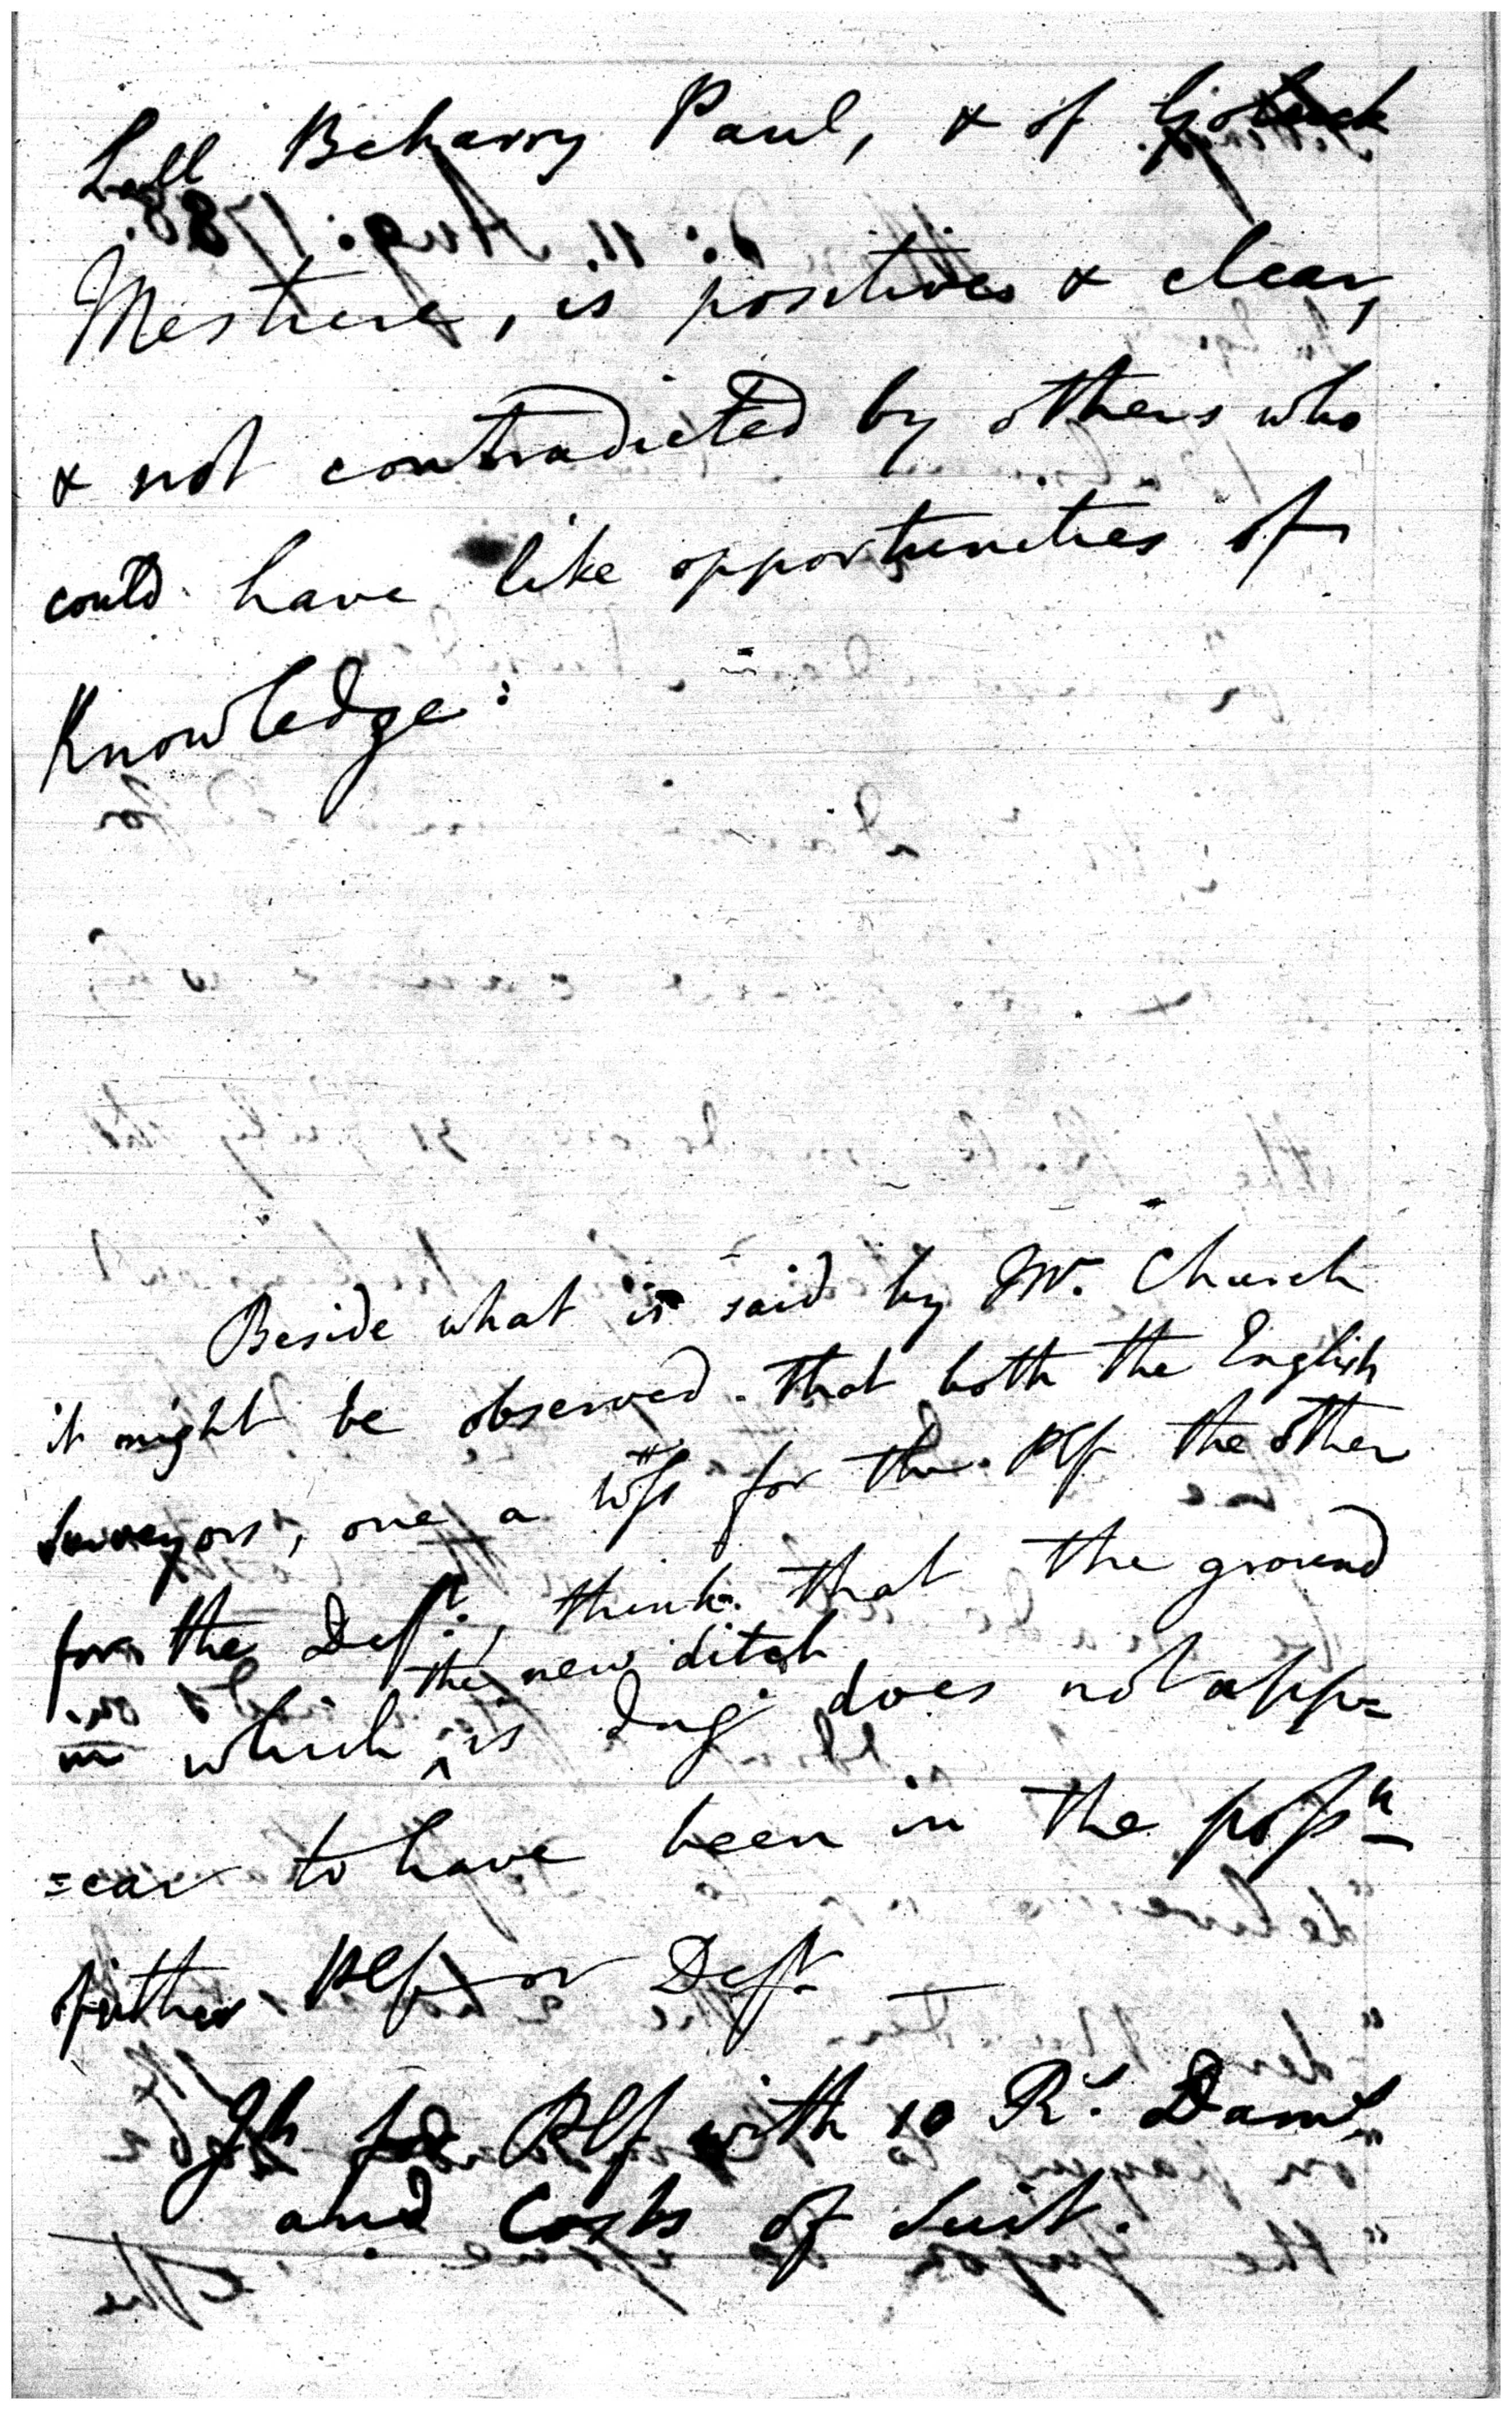 Lall Beharry Paul, & of
Mestree, is positive & clear,
& not contradicted by others who
could have like opportunities of
Knowledge:
Beside what is said by Mr. Church
it might be observed that both the English
Surveyors, one a Wss for the Plf the other
for the Deft., think that the ground
in which the new ditch is dug does not app=
=ear to have been in the possn
of either Plf or Deft —
Jt for Plf with 10 Rs. Dams
and Costs of Suit.